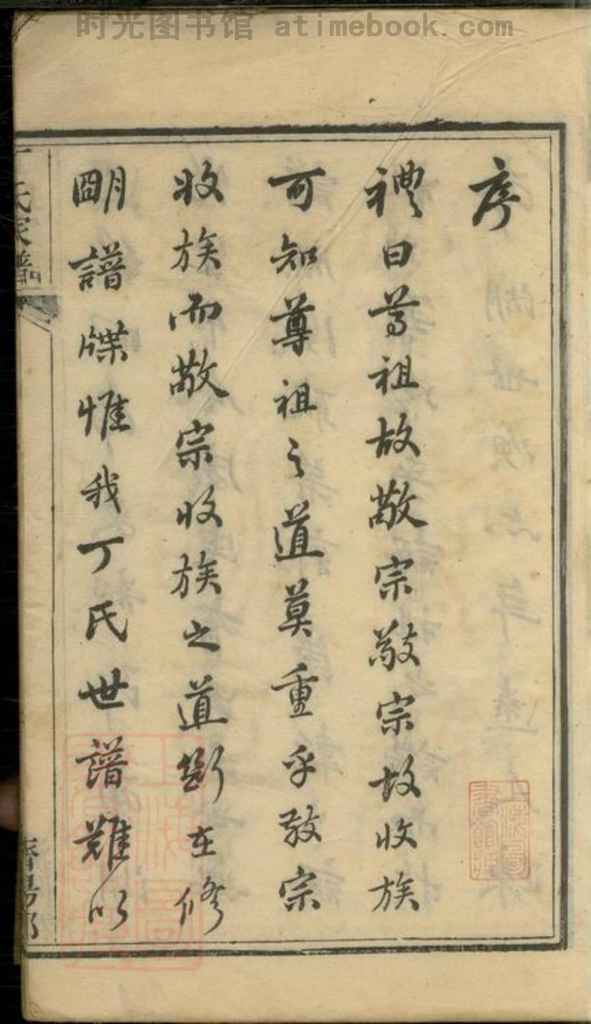 时光图书馆 atimebook.com
序
禮曰尊祖故敬宗敬宗故收族
可知尊祖之道莫重乎敬宗
收族而敬宗收族之道斷在修
明譜牒惟我丁氏世譜難以
丁氏家譜